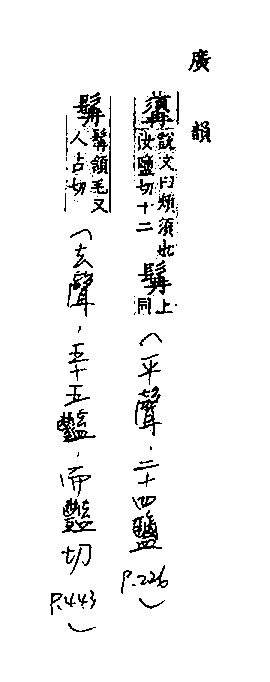 廣韻
䫇說文曰頰須也汝鹽切十二髯上同(平聲,二十四鹽 P.226)
髯髯頷毛又人占切(去聲,五十五豔,而豔切 P.443)